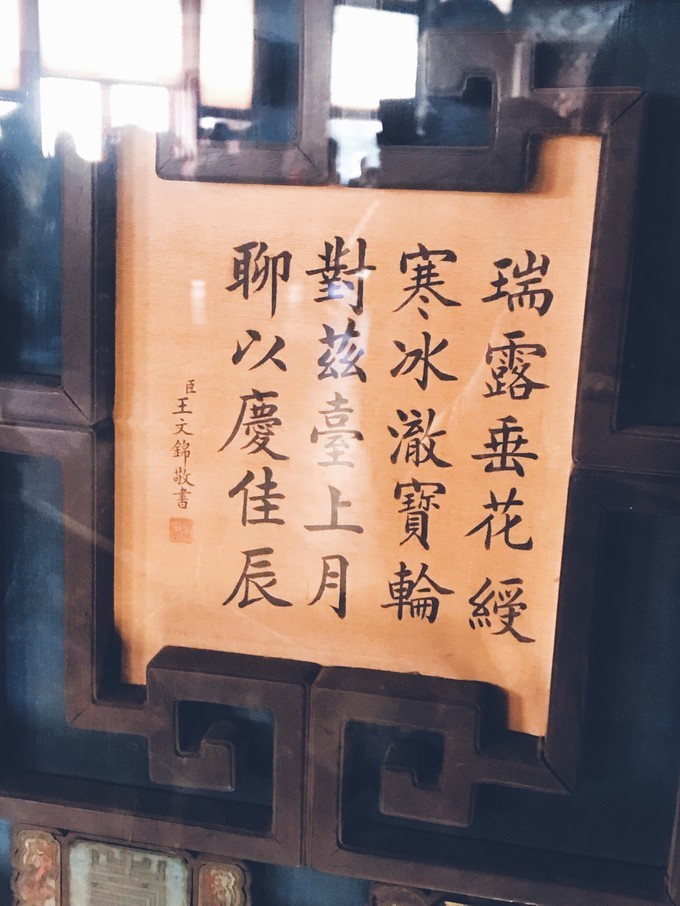 瑞露垂花綬
寒冰澈寶輪
對茲臺上月
聊以慶佳辰
臣王文錦敬書